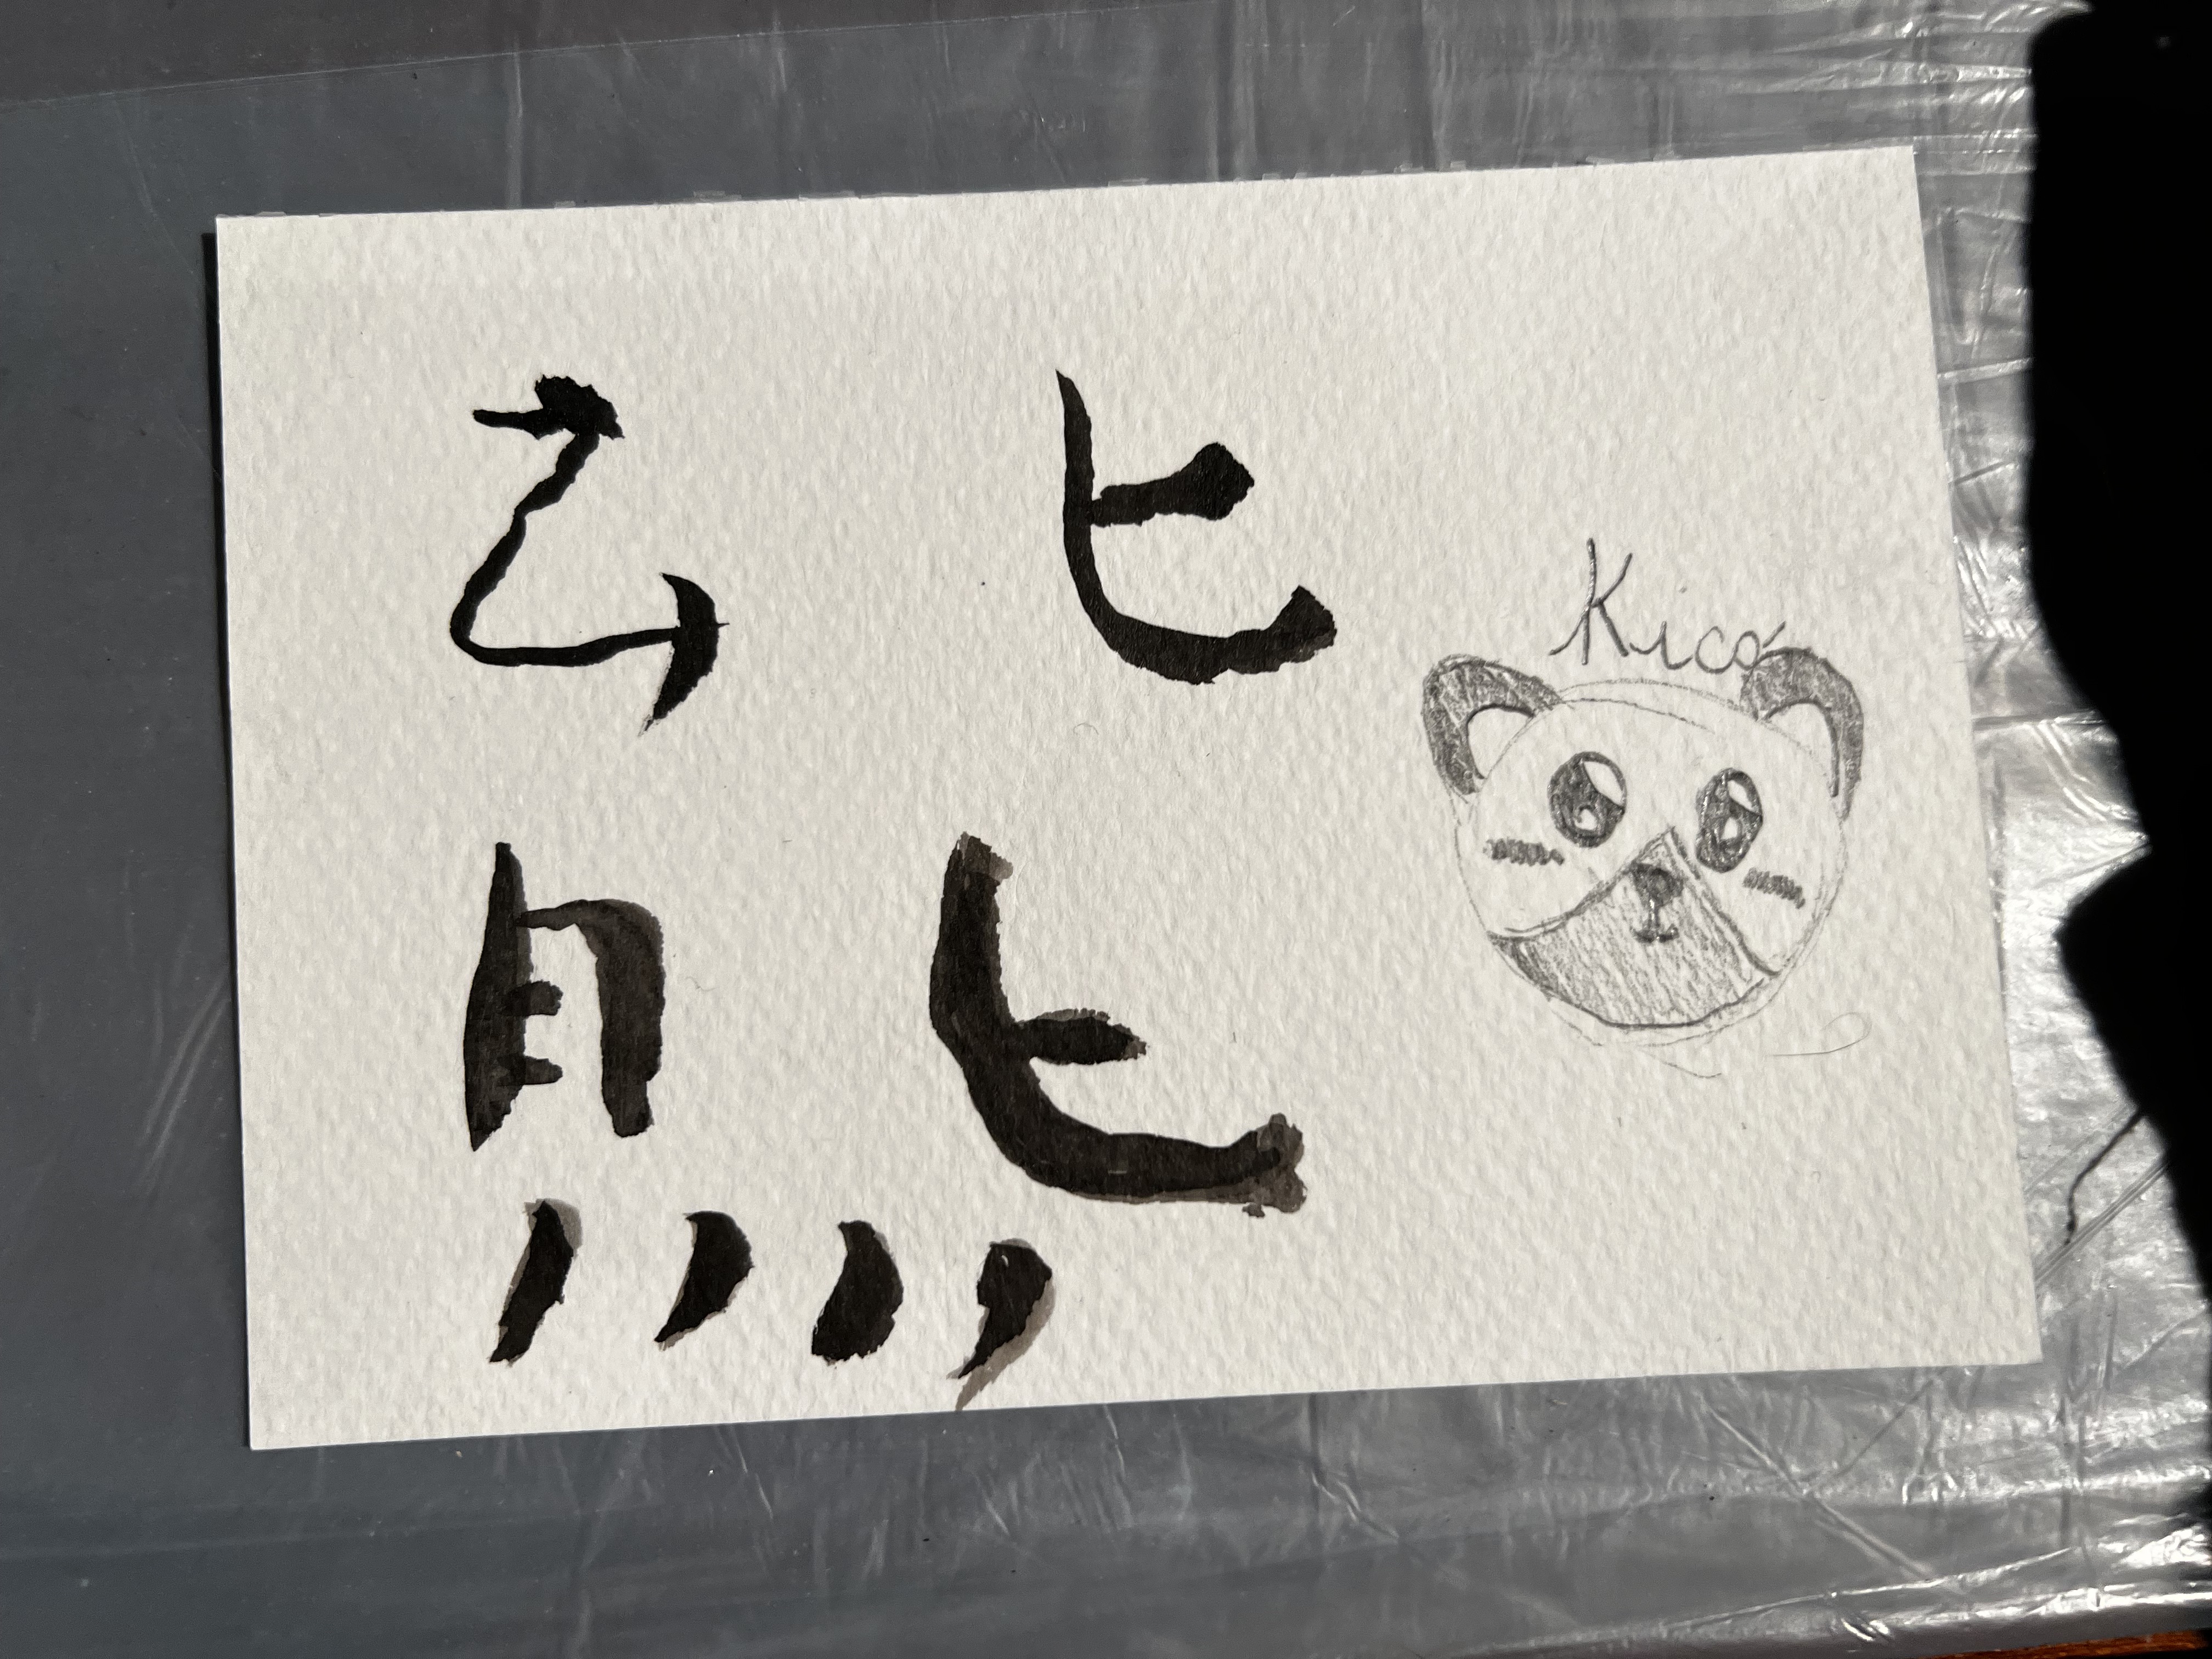 熊
Kico